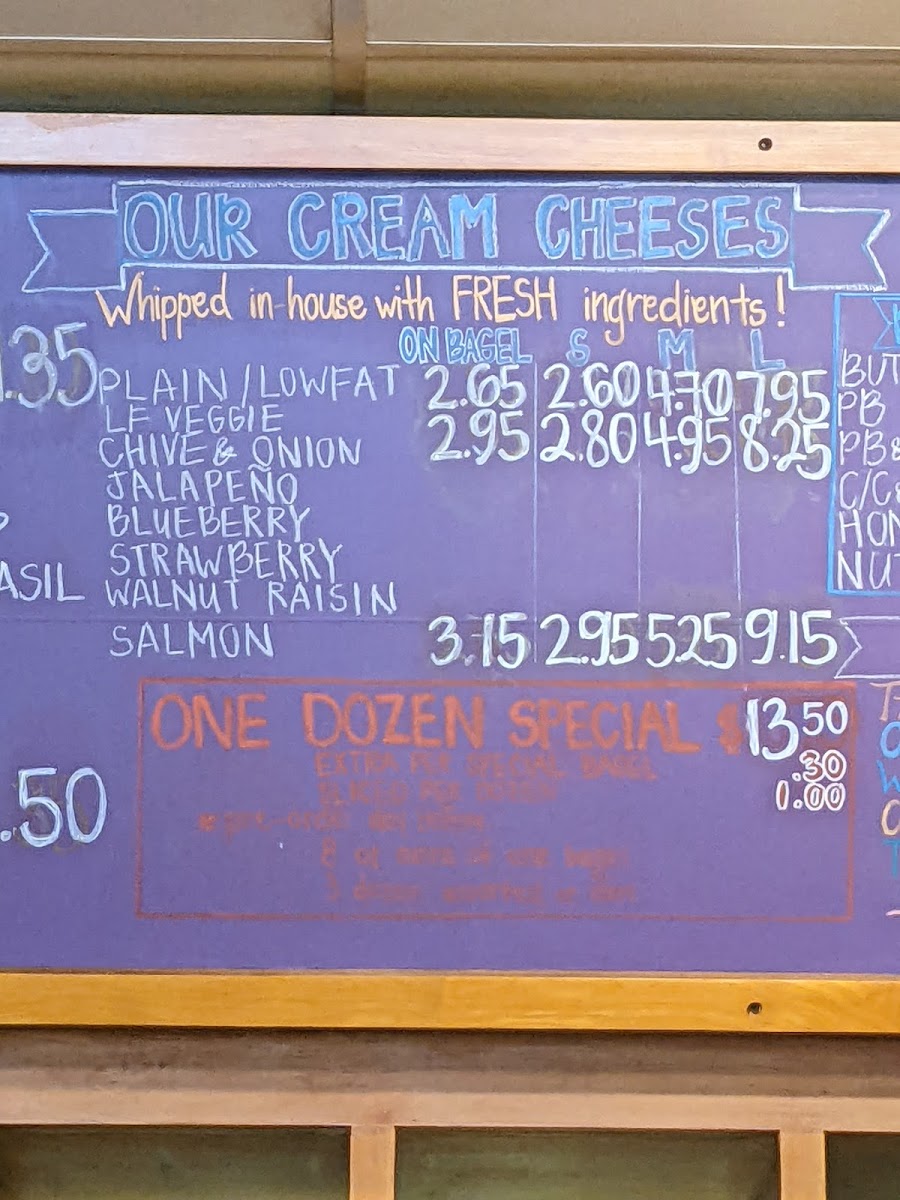 OUR CREAM CHEESES
Whipped in-house with FRESH ingredients!
ON BAGEL S M L
.35
PLAIN/LOWFAT 2.65 2.60 4.70 7.95
LF VEGGIE 2.95 2.80 4.95 8.25
CHIVE & ONION
JALAPEÑO
BLUEBERRY
STRAWBERRY
WALNUT RAISIN
SALMON 3.15 2.95 5.25 9.15
ASIL
BUT
PB
PB&
C/C&
HON
NUT
ONE DOZEN SPECIAL $13.50
EXTRA PER SPECIAL BAGEL .30
SLICED PER DOZEN 1.00
.50
8 or more of one bagel